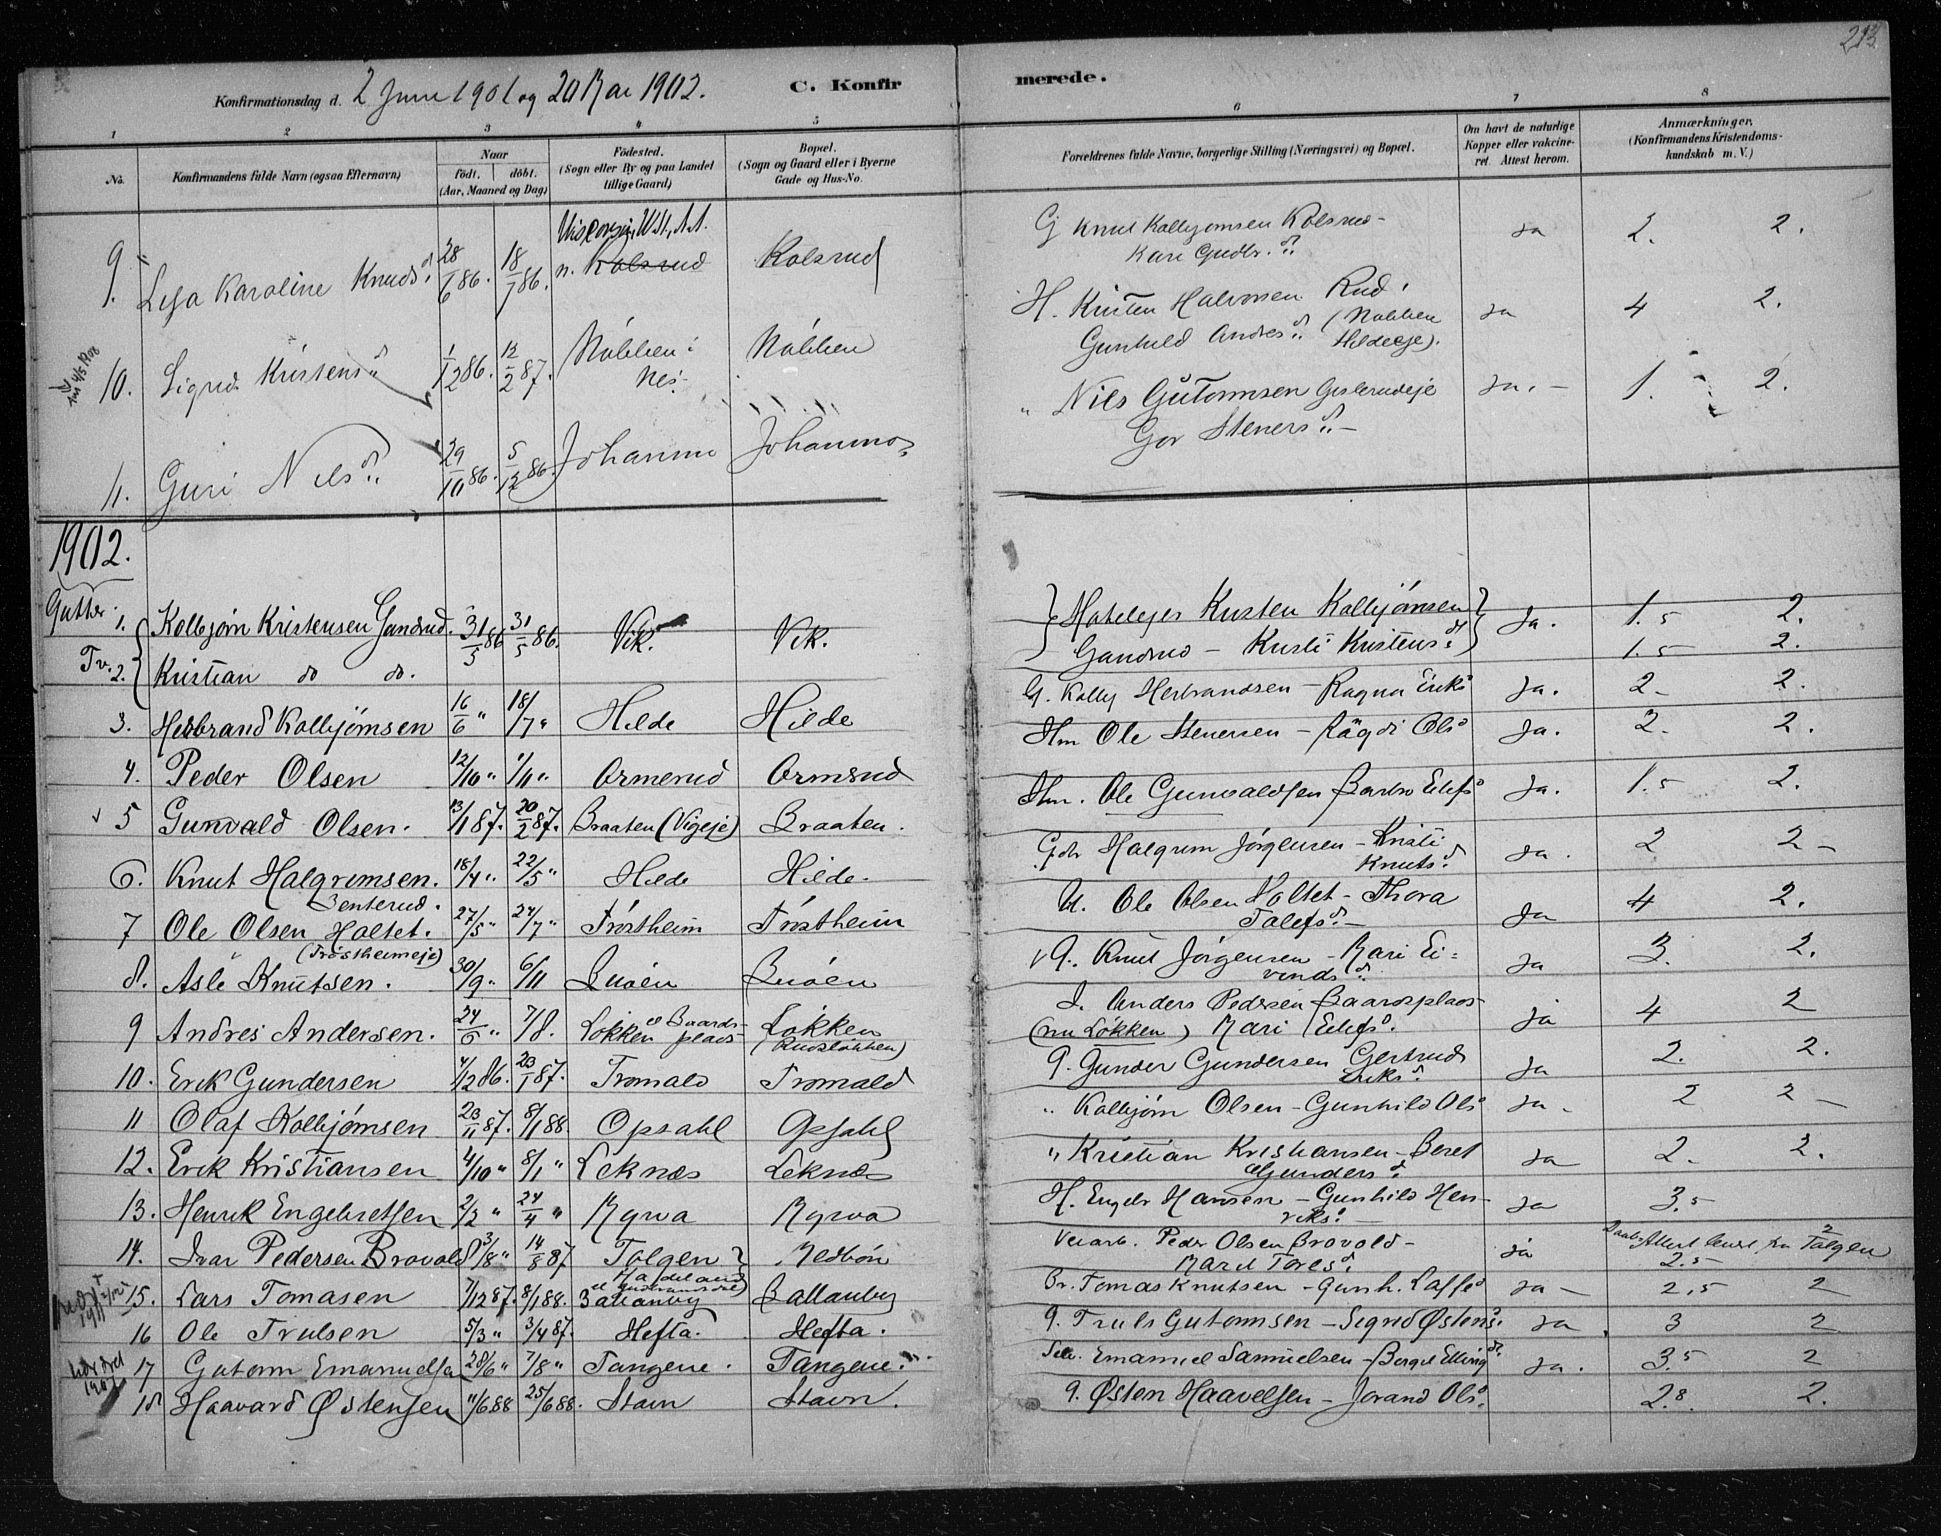 213
Konfirmationsdag d. 2 Juni 1901 og 20 Mai 1902. C. Konfirmerede.
1 2 3 4 5 6 7 8
No. Konfirmandens fulde Navn (ogsaa Efternavn) Naar født. døbt. (Aar, Maaned og Dag) Fødested. (Sogn eller By og paa Landet tillige Gaard) Bopæl. (Sogn og Gaard eller i Byerne Gade og Hus-No. Forældrenes fulde Navne, borgerlige Stilling (Næringsvei) og Bopæl. Om havt de naturlige Kopper eller vakcineret. Attest herom. Anmærkninger. (Konfirmandens Kristendomskundskab m. V.)
9. Karoline Knudsd. 28/6 86. 18/7 86. n. Kolsrud Kolsrud G Knut Kolbjørnsen Kolsrud - Kari Gudbr.d. Ja 2. 2.
10. Sigrid Kristensd. 1/12 86. 12/2 87. Nábben i Nes Nábben H. Kristen Halvorsen Rud (Nabben Hildeeje). Gunhild Andersd. Ja 4 2.
11. Guri Nilsd. 29/10 86. 5/12 86. Johanmo Johanmo „ Nils Gutormsen Geslerudeje Gor Stenersd. - Ja. - 1. 2.
1902.
Gutter.
1. Kolbjørn Kristensen Gandrud. 31/5 86 31/5 86. Vik. Vik. Hotelejer Kristen Kolbjørnsen Ja. 1.5 2.
Tv. 2. Kristian do do. Gandrud - Kristi Kristensd. 1.5 2.
3. Herbrand Kolbjørnsen 16/6 „ 18/7 „ Hilde Hilde G. Kolbj Herbrandsen - Ragna Eriksd Ja. 2 - 2.
4. Peder Olsen 12/10 „ 1/11 „ Ormerud Ormerud Hm Ole Stenersen - Rägdi Olsd Ja. 2. 2.
5 Gunvald Olsen. 13/1 87. 20/2 87. Braaten (Vigeje) Braaten. Hm. Ole Gunvaldsen Barbro Eilefsd Ja. 1.5 2.
6. Knut Halgrimsen. 18/4 „ 22/5 „ Hilde Hilde. Gdr Halgrim Jørgensen - Kristi Knutsd. Ja. 2 2 -
Benterud.
7 Ole Olsen Holtet. 27/5 „ 24/7 „ Trøstheim Trøstheim U. Ole Olsen Holtet - Thora Tolefsd. - Ja 4 2.
(Trøstheimeje)
8. Asle Knutsen. 30/9 „ 6/11 Buøen Buøen G. Knut Jørgensen - Mari Eivindsd. Ja 3. 2.
9 Andres Andersen. 24/6 „ 7/8. Løkken Baardsplads Løkken (Rudsløkken) I. Anders Pedersen Baardsplads (nu Løkken) Mari Eilefsd. ja 4 2
10. Erik Gundersen 4/12 86. 23/1 87. Tromald Tromald G. Gunder Gundersen Gertrud Eriksd. Ja 2. 2.
11 Olaf Kolbjørnsen 23/11 87. 8/1 88. Opsahl Opsahl „ Kolbjørn Olsen - Gunhild Olsd Ja - 2 2 -
12. Erik Kristiansen 4/10 „ 8/1 „ Leknes Leknes „ Kristian Kristiansen - Beret Gundersd. Ja 2. 2.
13. Henrik Engebretsen 2/2 „ 24/4 „ Myrva Myrva H. Engebr Hansen - Gunhild Henriksd. - Ja 3.5
14. Ivar Pedersen Brovold 3/8 „ 14/8 87 Tolgen Medbøn Veiarb. Peder Olsen Brovold - Marit Toresd. ja Tolgen 2.5 2
15. Lars Tomasen 7/12 87. 8/1 88. Ballanby Ballanby Br. Tomas Knutsen - Gunh. Lassesd Ja - 2.5 2
16 Ole Trulsen 5/3 „ 3/4 87. Hefta. Hefta. G. Truls Gutormsen - Sigrid Østensd. Ja 3 2
17 Gutorm Emanuelsen 28/6 „ 7/8 „ Tangene. Tangene. Emanuel Samuelsen - Bergit Ellingsd. Ja. 3.5 2
18 Haavard Østensen 11/6 88 25/6 88. Stavn Stavn. G. Østen Haavelsen - Jorand Olsd. 2.8. 2.